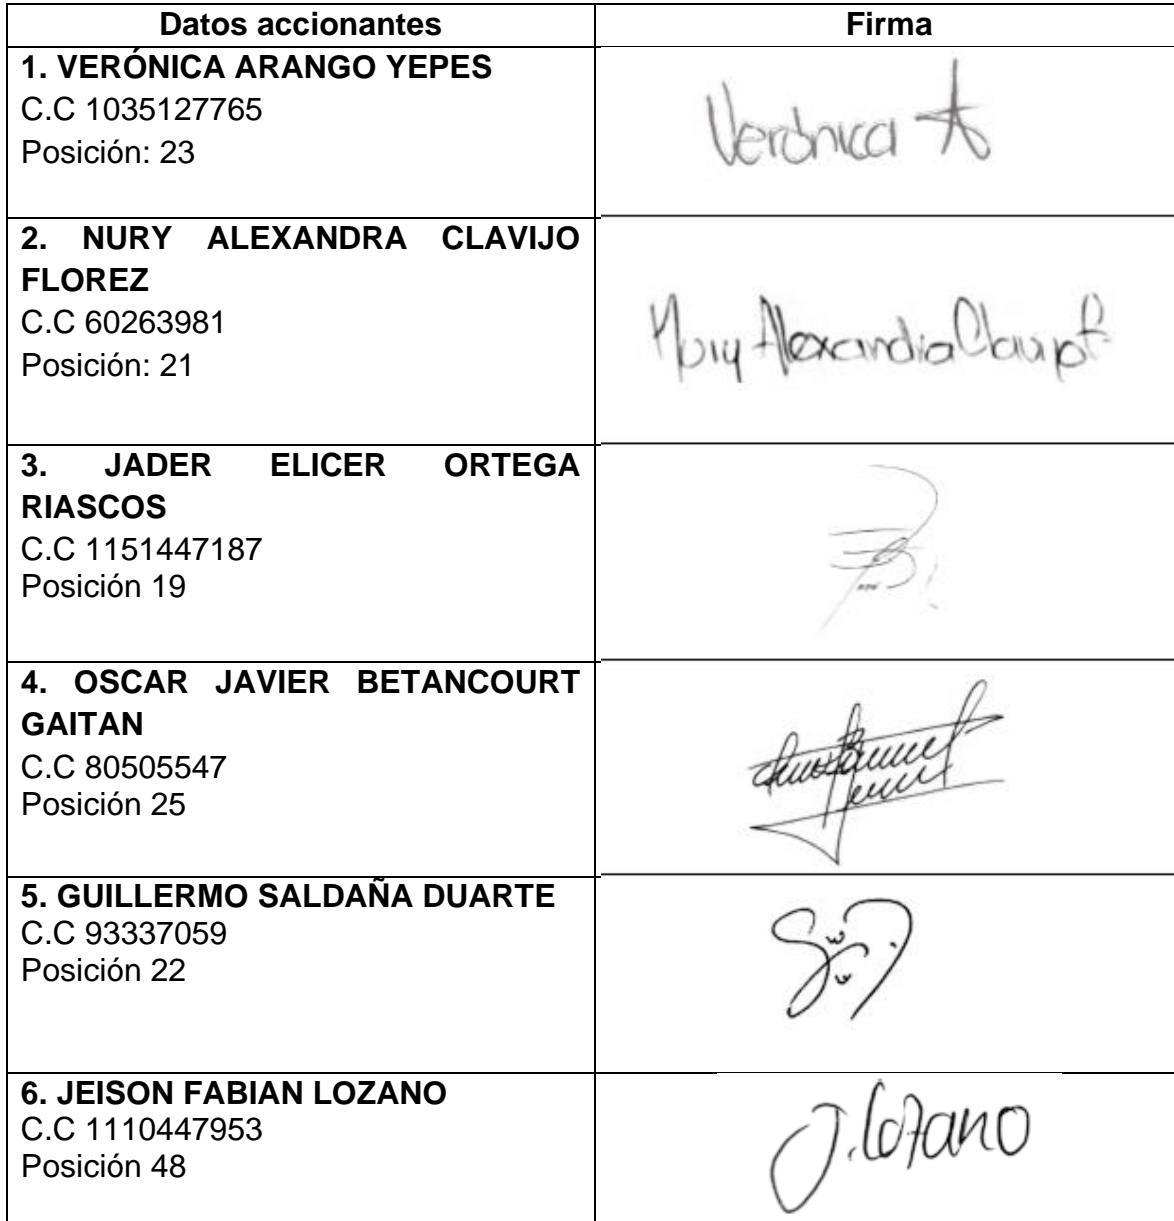 Datos accionantes Firma
1. VERÓNICA ARANGO YEPES
C.C 1035127765
Posición: 23
Verónica A
2. NURY ALEXANDRA CLAVIJO
FLOREZ
C.C 60263981
Posición: 21
Nury Alexandra Clavijo F
3. JADER ELICER ORTEGA
RIASCOS
C.C 1151447187
Posición 19
4. OSCAR JAVIER BETANCOURT
GAITAN
C.C 80505547
Posición 25
5. GUILLERMO SALDAÑA DUARTE
C.C 93337059
Posición 22
6. JEISON FABIAN LOZANO
C.C 1110447953
Posición 48
J. Lozano